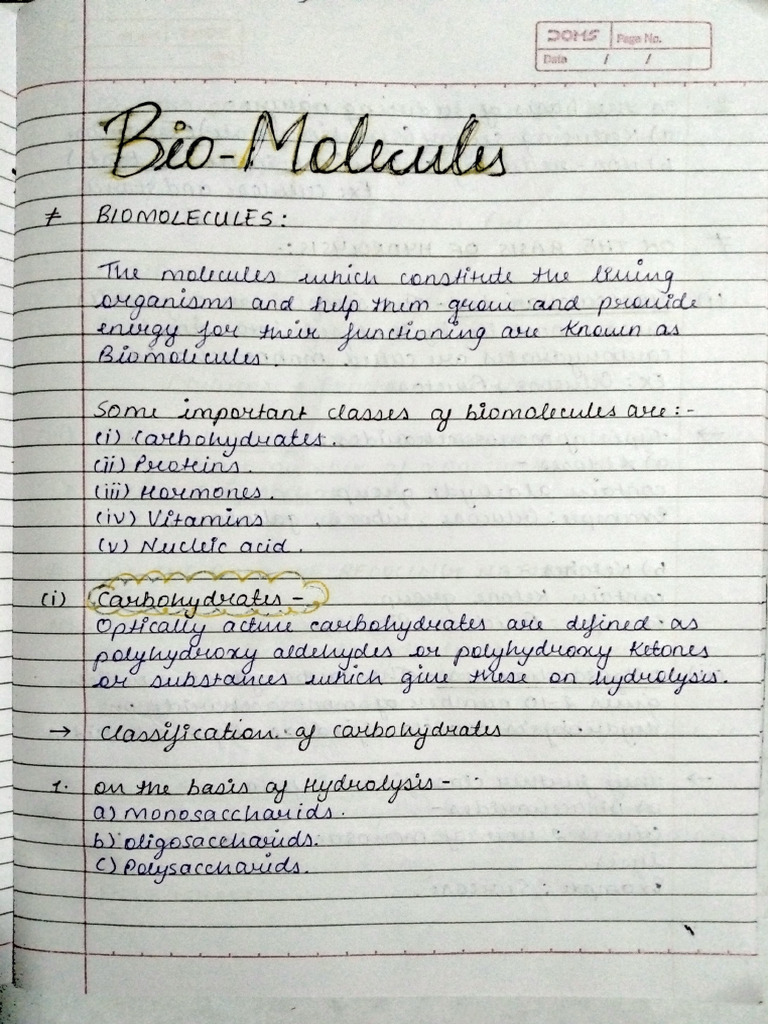 DOMS Page No.
Date / /
Bio-Molecules
≠ BIOMOLECULES:
The molecules which constitute the living
organisms and help them grow and provide
energy for their functioning are known as
Biomolecules.
Some important classes of biomolecules are:-
(i) Carbohydrates.
(ii) Proteins.
(iii) Hormones.
(iv) Vitamins
(v) Nucleic acid.
(i) Carbohydrates -
Optically active carbohydrates are defined as
polyhydroxy aldehydes or polyhydroxy ketones
or substances which give these on hydrolysis.
→ Classification of carbohydrates
1. on the basis of Hydrolysis -
a) Monosaccharids.
b) oligosaccharids.
c) Polysaccharids.